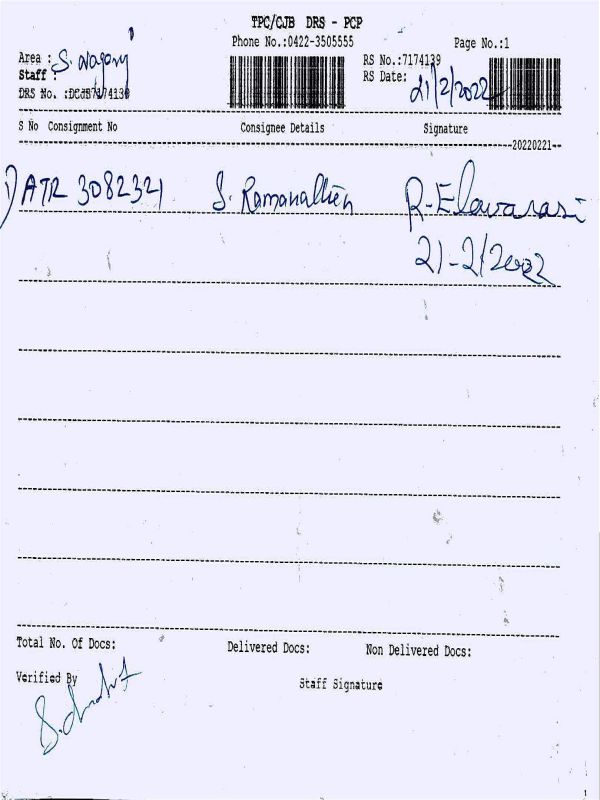 TPC/CJB DRS - PCP
Phone No.:0422-3505555 Page No.:1
Area : RS No.:7174139
Staff : RS Date: 21/2/2022
DRS No. :DCJB7174139
S No Consignment No Consignee Details Signature
20220221
1) ATR 3082321 S. Ramanathen R-Elavarasi
21-2/2022
Total No. Of Docs: Delivered Docs: Non Delivered Docs:
Verified By Staff Signature